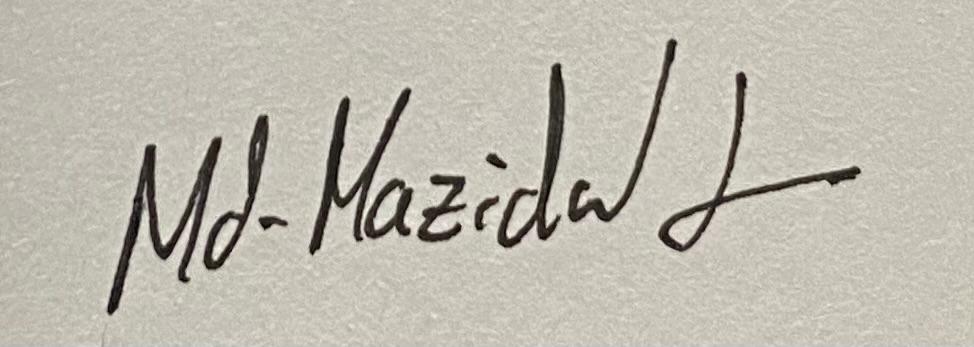 Md. Mazidul I